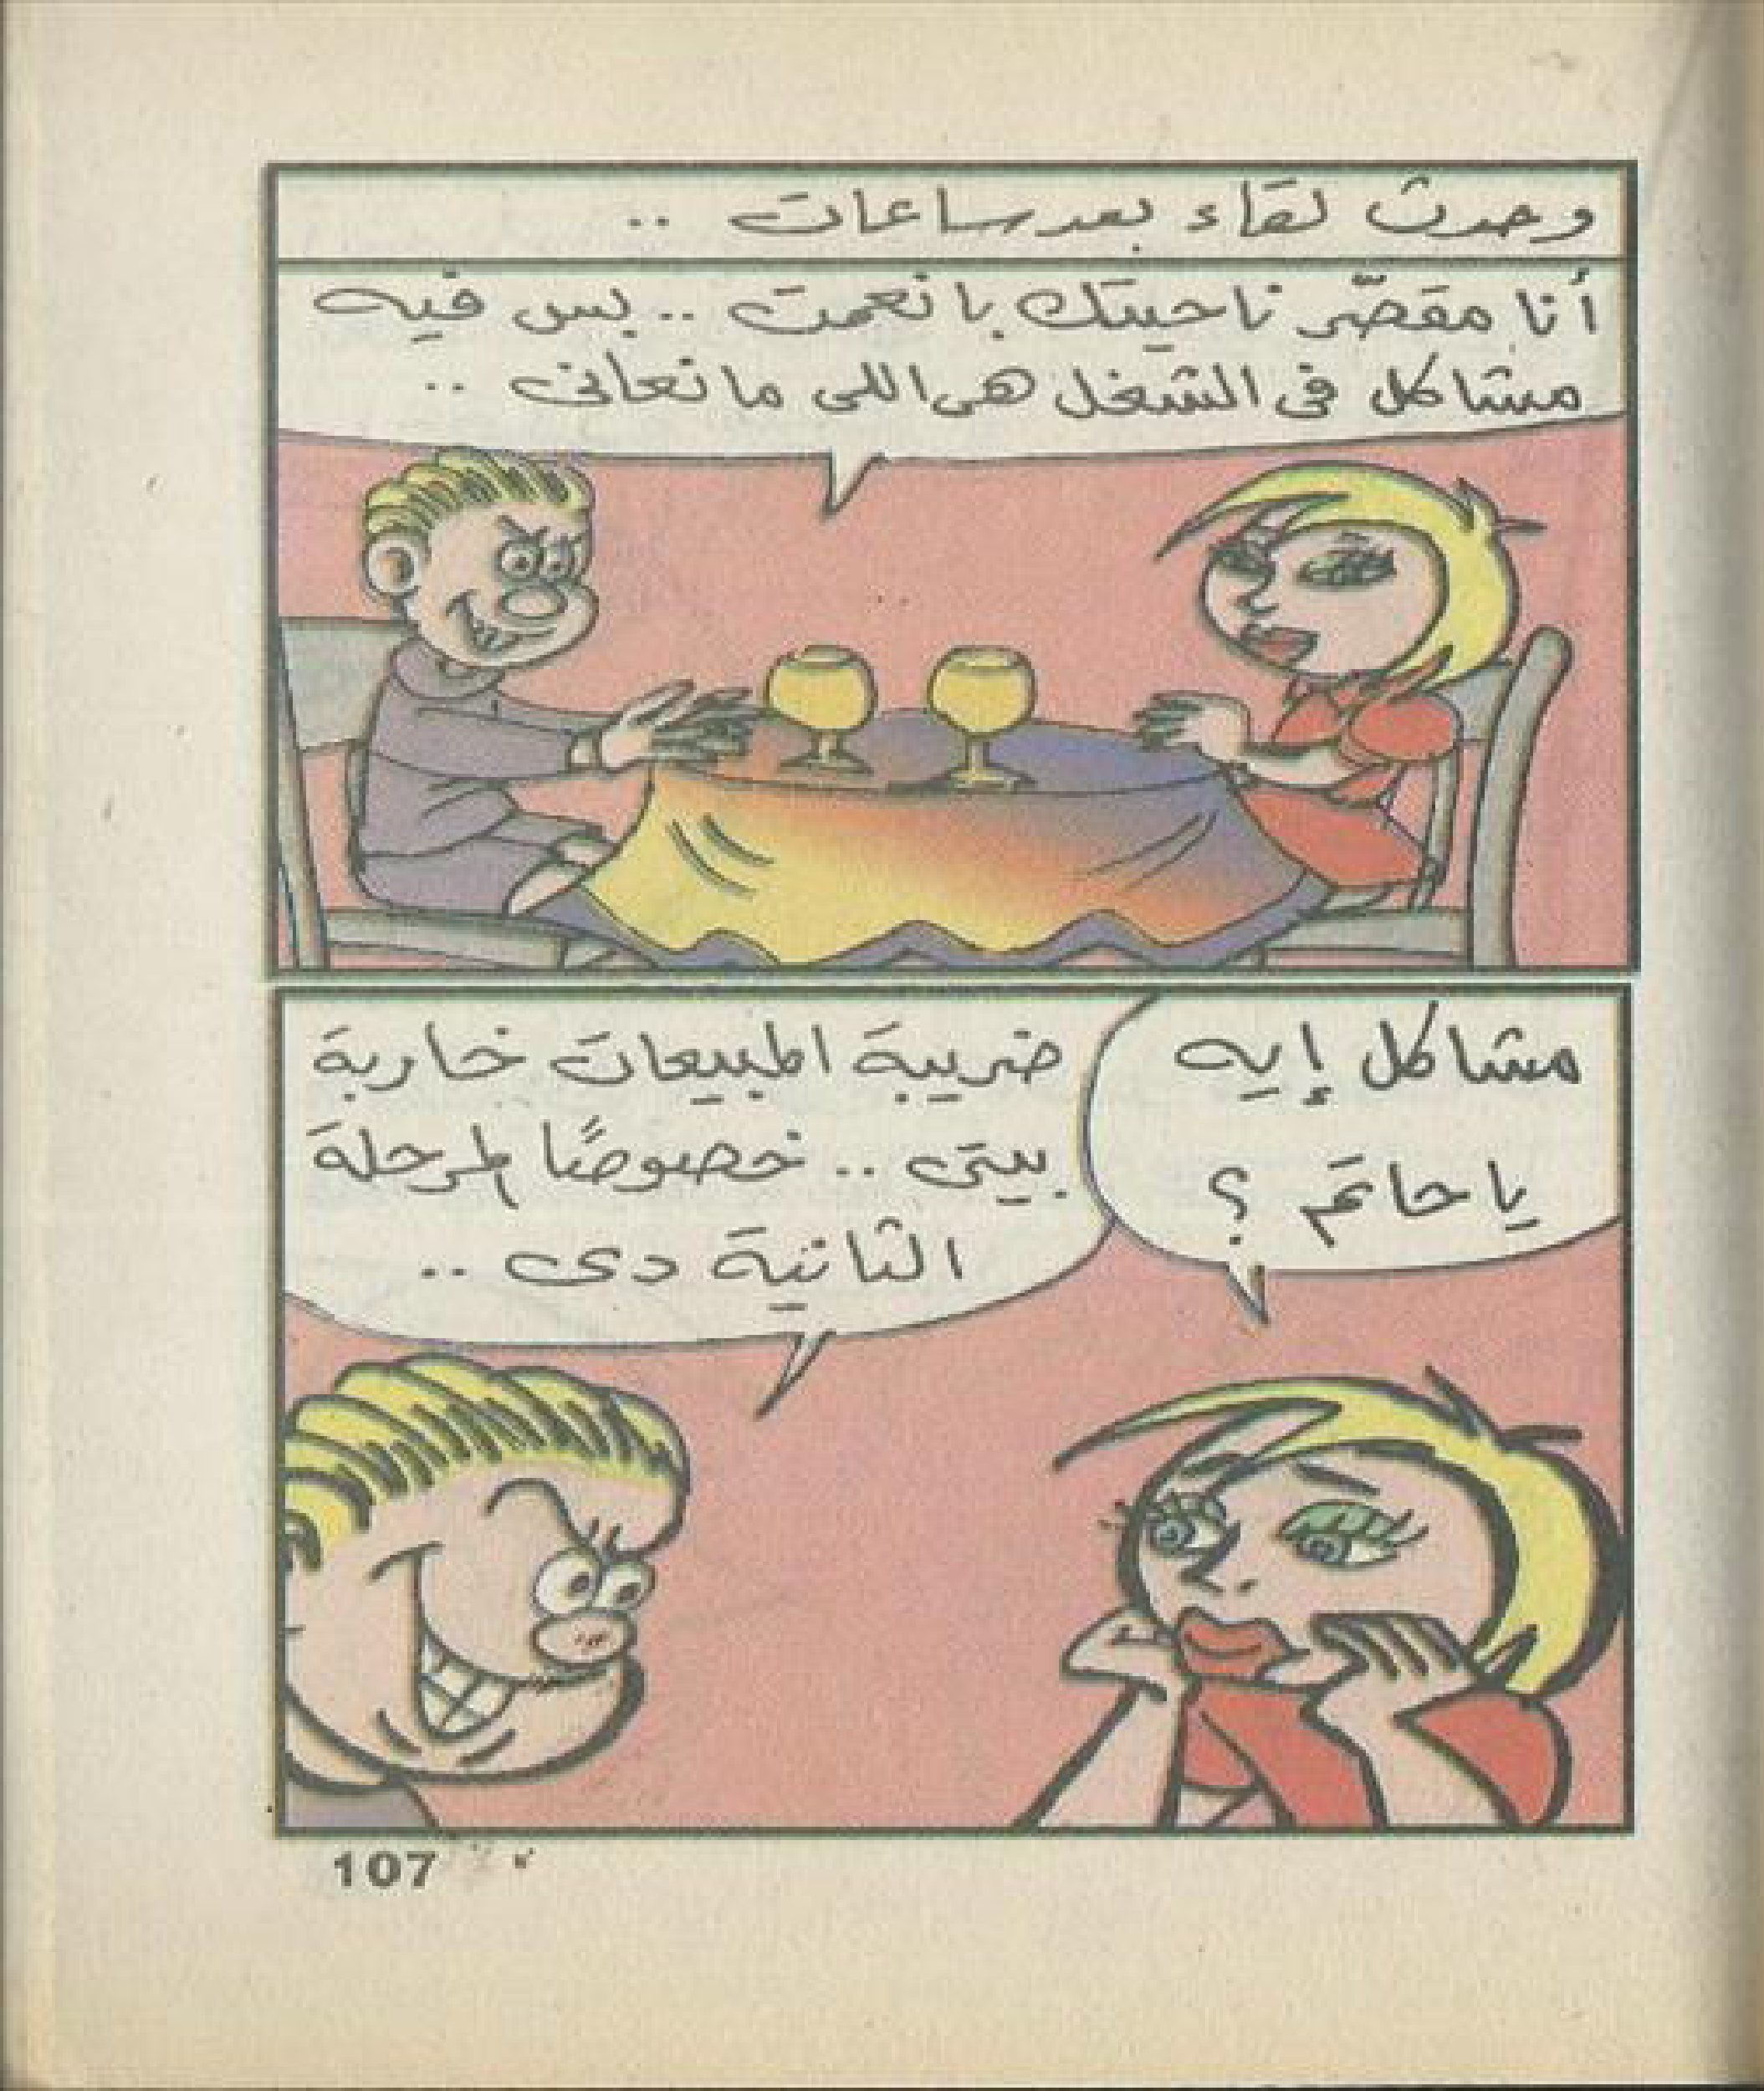 وحدث لقاء بعد ساعات ..
أنا مقصّر ناحيتك يا نعمت .. بس فيه
مشاكل فى الشغل هى اللى مانعانى ..
مشاكل إيه
يا حاتم ؟
ضريبة المبيعات خاربة
بيتى .. خصوصًا المرحلة
الثانية دى ..
107